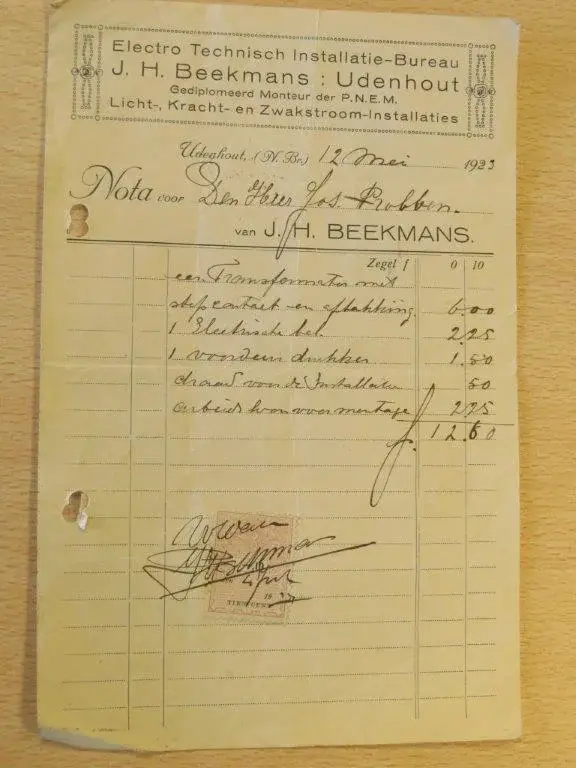 Electro Technisch Installatie-Bureau
J. H. Beekmans : Udenhout
Gediplomeerd Monteur der P.N.E.M.
Licht-, Kracht- en Zwakstroom-Installaties
Udenhout, (N. Br.) 12 Mei 1923
Nota voor Den Heer Jos Robben.
van J. H. BEEKMANS.
Zegel f 0 10
een Transformator met
stopcontact en aftakking. 6.00
1 Electrische bel 2.25
1 voordeur drukker 1.50
draad voor de Installatie 50
arbeidsloon voor montage 2.25
f. 12.60
JHBeekmans
19
TIEN CENT